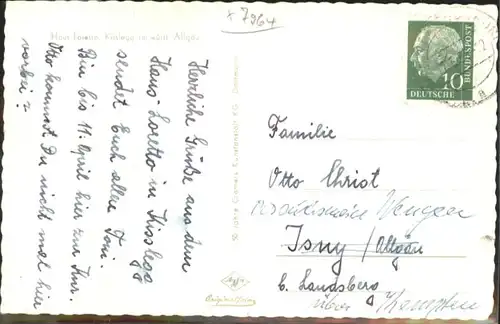 x 7964
Haus Loreto, Kisslegg im württ. Allgäu
Herrliche Grüße aus dem
Haus Loretto in Kisslegg
sendet Euch allen Toni.
Bin bis 11. April hier zur Kur.
Otto kommst Du nicht mal hier
vorbei?
10
DEUTSCHE
BUNDESPOST
Familie
Otto Christ
Wengen
Isny / Allgäu
b. Landsberg
über Kempten